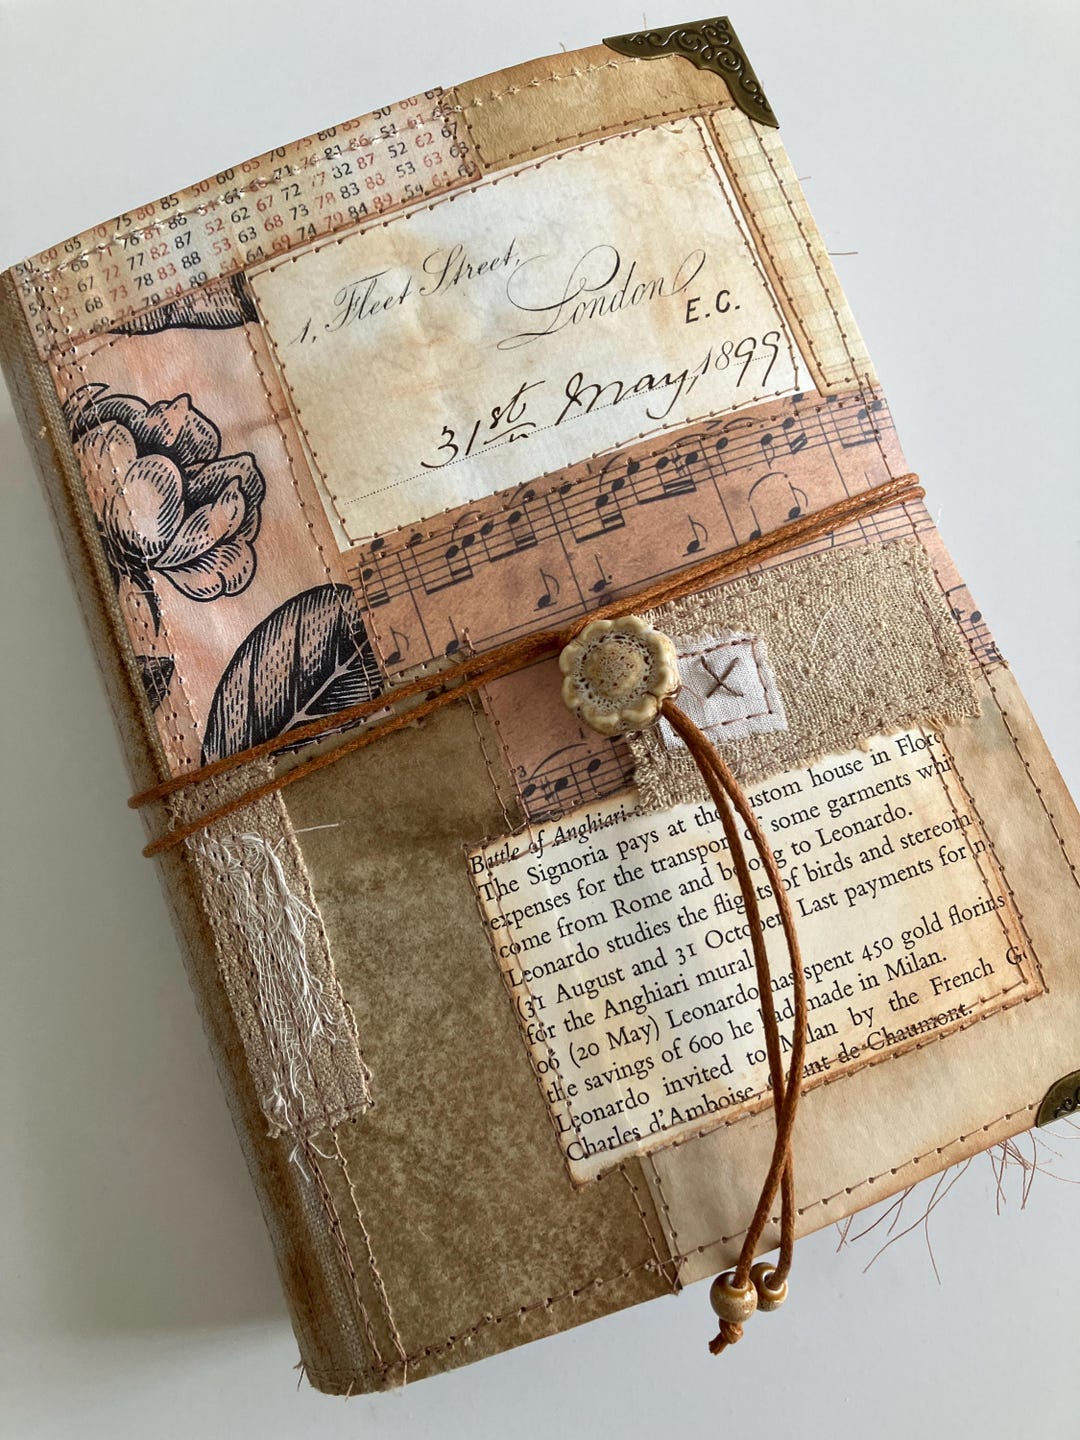 60 65 75 80 85 50 60 65 70 75 80 85 50 60 65
66 71 76 81 86 51 61 71 76 81 86 51 61
67 72 77 82 87 52 62 67 72 77 82 87 52 62 67
68 73 78 83 88 53 63 68 73 78 83 88 53 63 68
79 84 89 54 64 69 74 79 84 89 54 61
1, Fleet Street,
London
E.C.
31st May, 1899
3
Battle of Anghiari
The Signoria pays at the custom house in Flor
expenses for the transport of some garments whi
come from Rome and belong to Leonardo.
Leonardo studies the flights of birds and stereom
(31 August and 31 October) Last payments for
for the Anghiari mural
06 (20 May) Leonardo has spent 450 gold florins
the savings of 600 he had made in Milan.
Leonardo invited to Milan by the French G
Charles d'Amboise, Count de Chaumont.
X